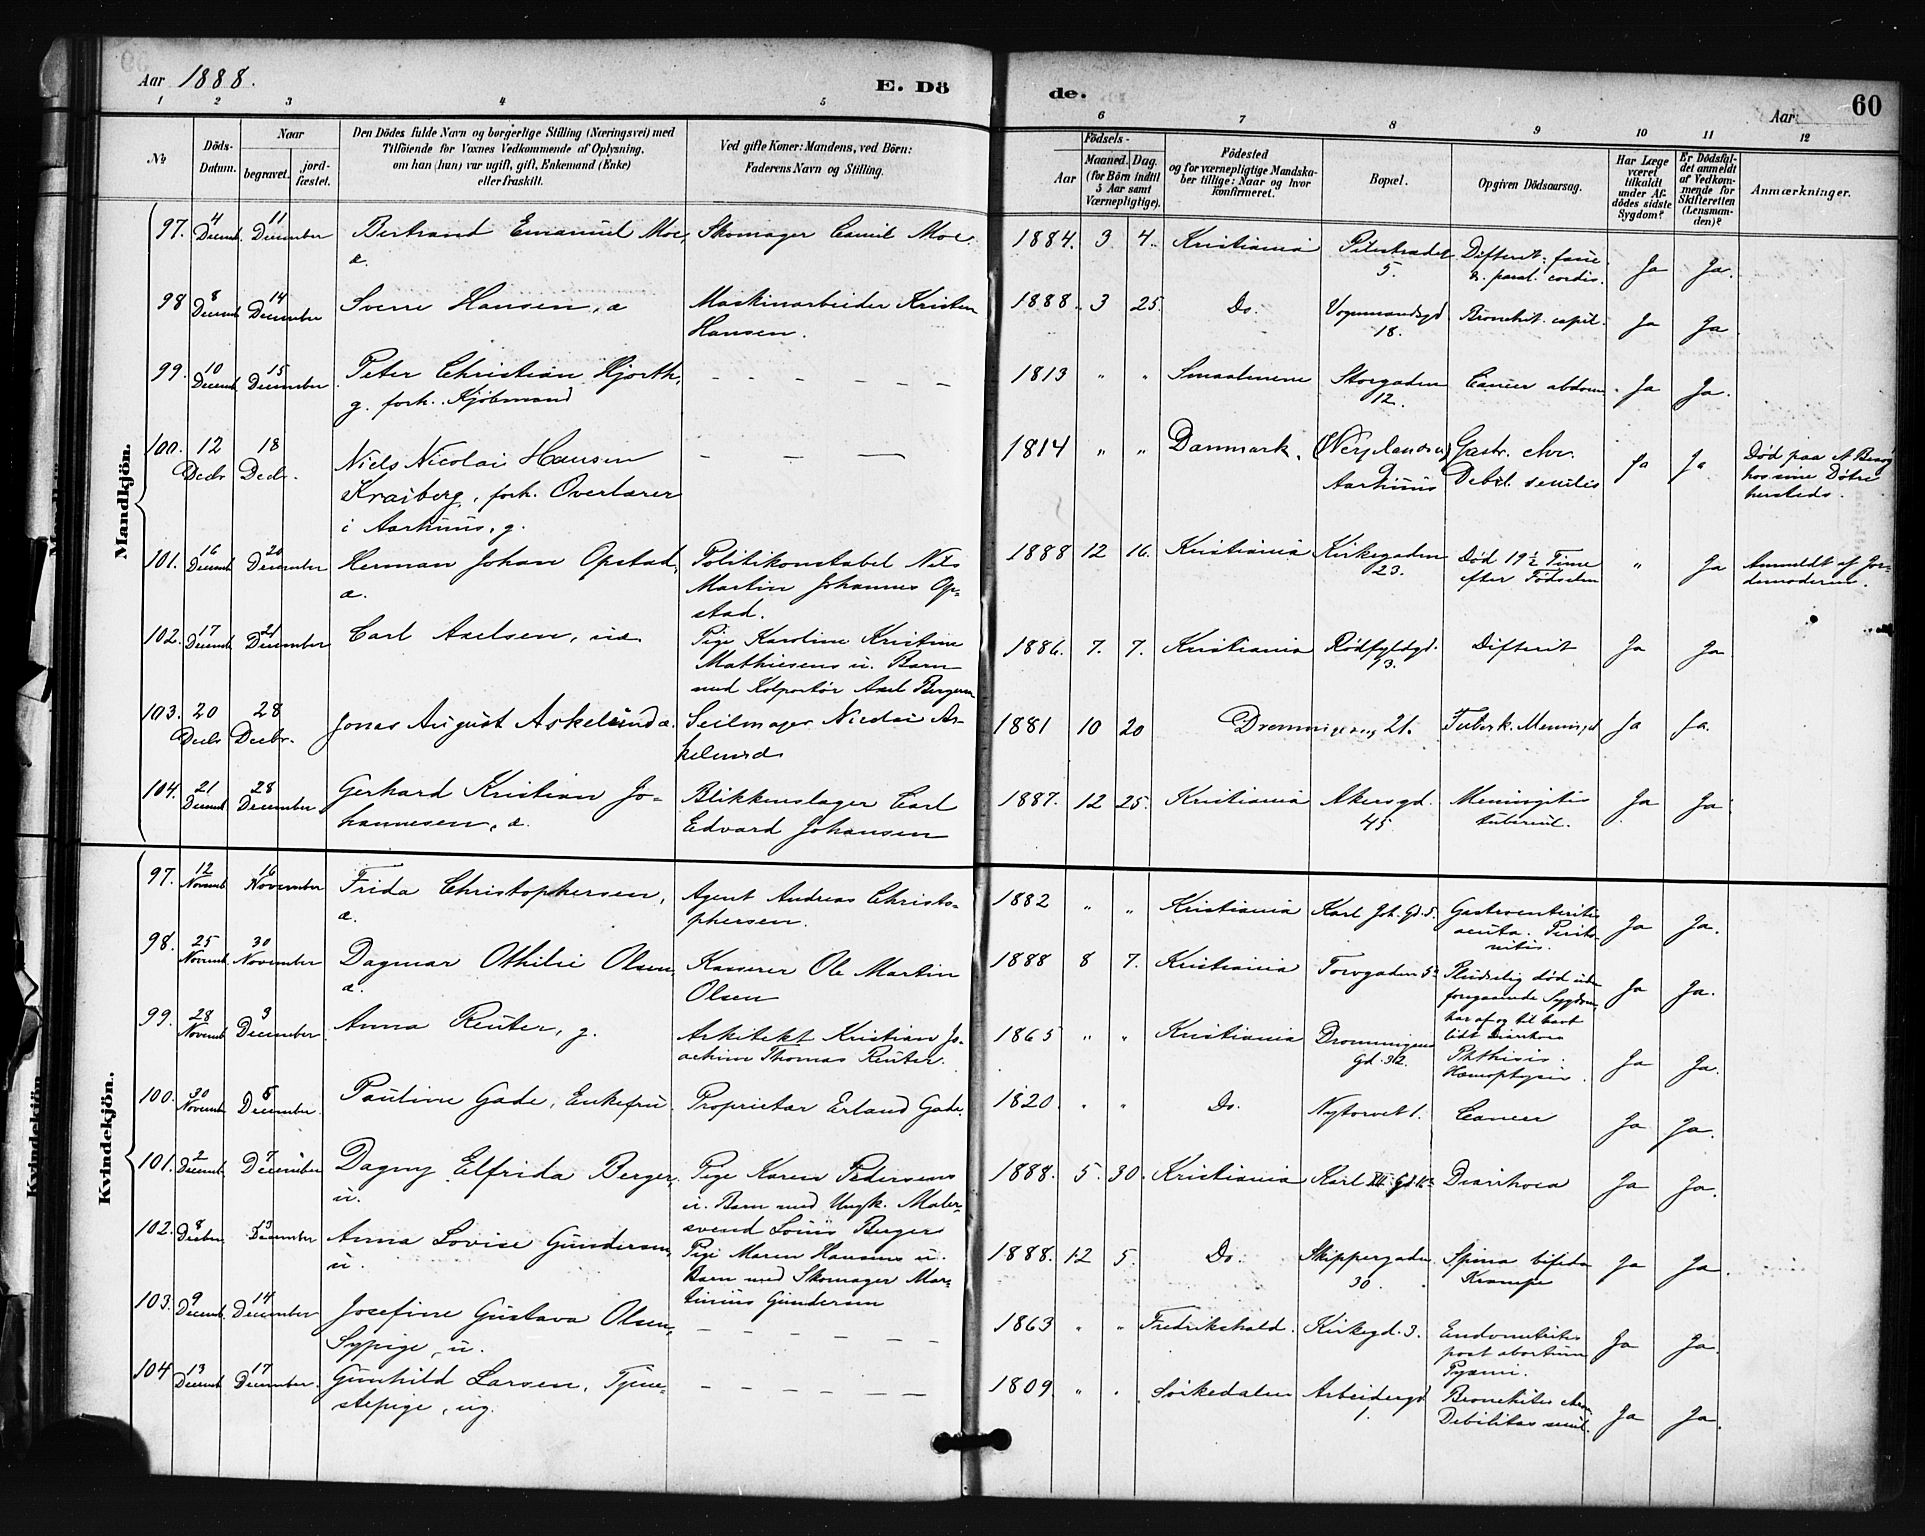 Aar 1888.
E. Dö
de.
Aar
60
1 2 3 4 5 6 7 8 9 10 11 12
No
Döds-Datum.
Naar
begravet.
jord-fæstet.
Den Dödes fulde Navn og borgerlige Stilling (Næringsvei) med
Tilföiende for Voxnes Vedkommende af Oplysning,
om han (hun) var ugift, gift, Enkemand (Enke)
eller fraskilt.
Ved gifte Koner: Mandens, ved Börn:
Faderens Navn og Stilling.
Födsels-
Aar
Maaned.
Dag.
(for Börn indtil
5 Aar samt
Værnepligtige).
Födested
og for værnepligtige Mandska-
ber tillige: Naar og hvor
konfirmeret.
Bopæl.
Opgiven Dödsaarsag.
Har Læge
været
tilkaldt
under Af-
dödes sidste
Sygdom?
Er Dödsfal-
det anmeldt
af Vedkom-
mende for
Skifteretten
(Lensman-
den)?
Anmærkninger.
Mandkjön.
97. 4 Decemb. 11 December Bertrand Emanuel Moe, Skomager Camil Moe. 1884. 3 4. Kristiania 5. Difterit. Ja Ja.
æ. paral. cordis.
98 8 Decemb 14 December Sverre Hansen, æ Maskinarbeider Kristen 1888. 3 25. Do. Vognmandsgd Bronchit. capil. Ja Ja
Hansen. 18.
99. 10 Decemb 15 December Peter Christian Hjorth, – – – – – – 1813 " " Smaalenene Storgaden Cancer abdom. Ja Ja.
g. forh. Kjöbmand 12.
100. 12 Decbr 18 Decbr. Niels Nicolai Hansen – – – 1814 " " Danmark. Gastr. chr. Ja Ja Død paa et Besøg
Kraiberg, forh. Overlærer Aarhuus Debil. senilis hos sine Døtre
i Aarhuus, g. hersteds.
101. 16 Decemb 20 December Herman Johan Opstad, Politikonstabel Nils 1888 12 16. Kristiania Kirkegaden Død 19½ Time " Ja Anmeldt af Jor-
æ. Martin Johannes Op- 23. efter Fødselen demoderen.
stad.
102. 17 Decemb 21 December Carl Axelsen, uæ Pige Karoline Kristine 1886. 7. 7. Kristiania Rødfyldgd. Difterit Ja Ja
Mathiesens u. Barn 93.
med Kolportør Axel Bergersen
103. 20 Decbr 28 Decbr. Jonas August Askelund æ. Seilmager Nicolai As- 1881 10 20 21. Tuberk. Meningit Ja Ja.
kelund
104. 21 Decemb 28 December Gerhard Kristian Jo- Blikkenslager Carl 1887. 12 25. Kristiania Akersgd. Meningitis Ja Ja
hannesen, æ. Edvard Johansen 45 tubercul.
Kvindekjön.
97. 12 Novemb 16 November Frida Christophersen, Agent Andreas Christo- 1882 " " Kristiania Karl Joh. Gd. 5. Gastroenteritis Ja Ja.
æ. phersen. acuta. Perito-
nitis.
98. 25 Novemb. 30 November Dagmar Othilie Olsen, Kasserer Ole Martin 1888 8 7. Kristiania Torvgaden Pludselig død uden Ja Ja.
æ. Olsen foregaaende Sygdom,
har af og til havt
lidt Diarrhoea
99. 28 Novemb 3 December Anna Reuter, g. Arkitekt Kristian Jo- 1865 " " Kristiania Dronningens Phthisis. Ja Ja.
achim Thomas Reuter. Gd. 32. Hæmoptysis.
100. 30 Novemb 6 December. Pauline Gade, Enkefru. Proprietær Erland Gade. 1820. " " Do. Nytorvet 1. Cancer Ja Ja.
101. 2 Decemb. 7 December Dagny Elfrida Berger, Pige Karen Pedersens 1888. 5. 30. Kristiania Karl XII Gd Diarrhoea Ja Ja.
u. u. Barn med Ungk. Maler-
svend Louis Berger
102. 8 Decbr 13 December Anna Lovise Gundersen, Pige Maren Hansens u. 1888. 12 5. Do. Skippergaden Spina bifida Ja Ja.
u. Barn med Skomager Mar- 30. Krampe
tinius Gundersen
103. 9 Decemb. 14 December Josefine Gustava Olsen, – – – – – – 1863 " " Fredrikshald. Kirkegd. 3. Endometritis Ja Ja.
Sypige, u. post abortum
Pyæmi.
104 13 Decemb 17 December. Gunhild Larsen, Tjene- – – – – – – 1809. " " Sørkedalen Arbeidergd Bronchitis chron. Ja Ja.
stepige, ug. 1. Debilitas senil.